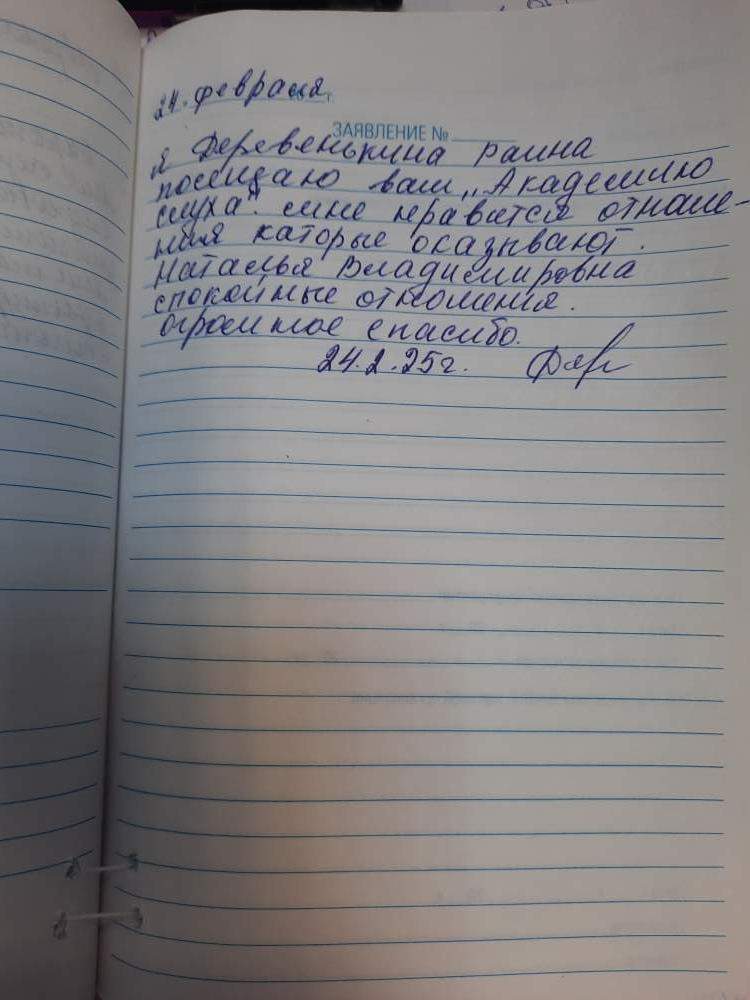 24. февраля г.
ЗАЯВЛЕНИЕ №
я Деревенькина раина
посещаю ваш „Академию
слуха". мне нравится отноше-
ния каторые оказывают.
Наталья Владимировна
спокойные отношения.
огромное спасибо.
24.2.25г. Дер